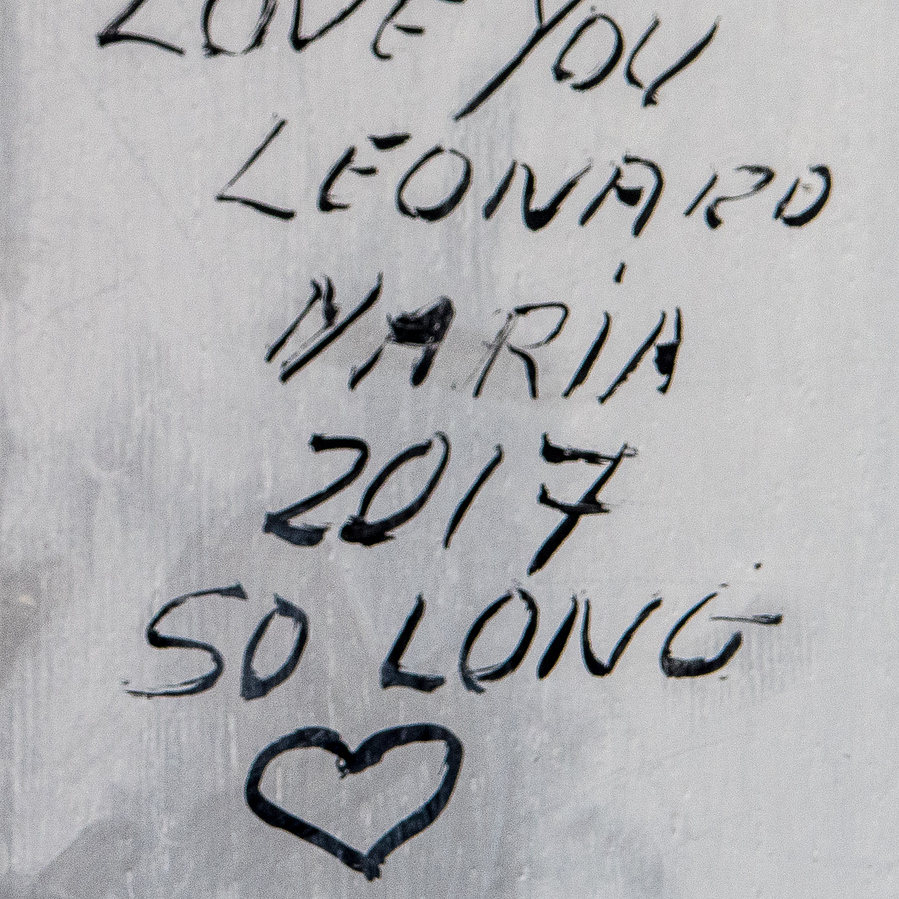 LOVE YOU
LEONARD
MARiA
2017
SO LONG